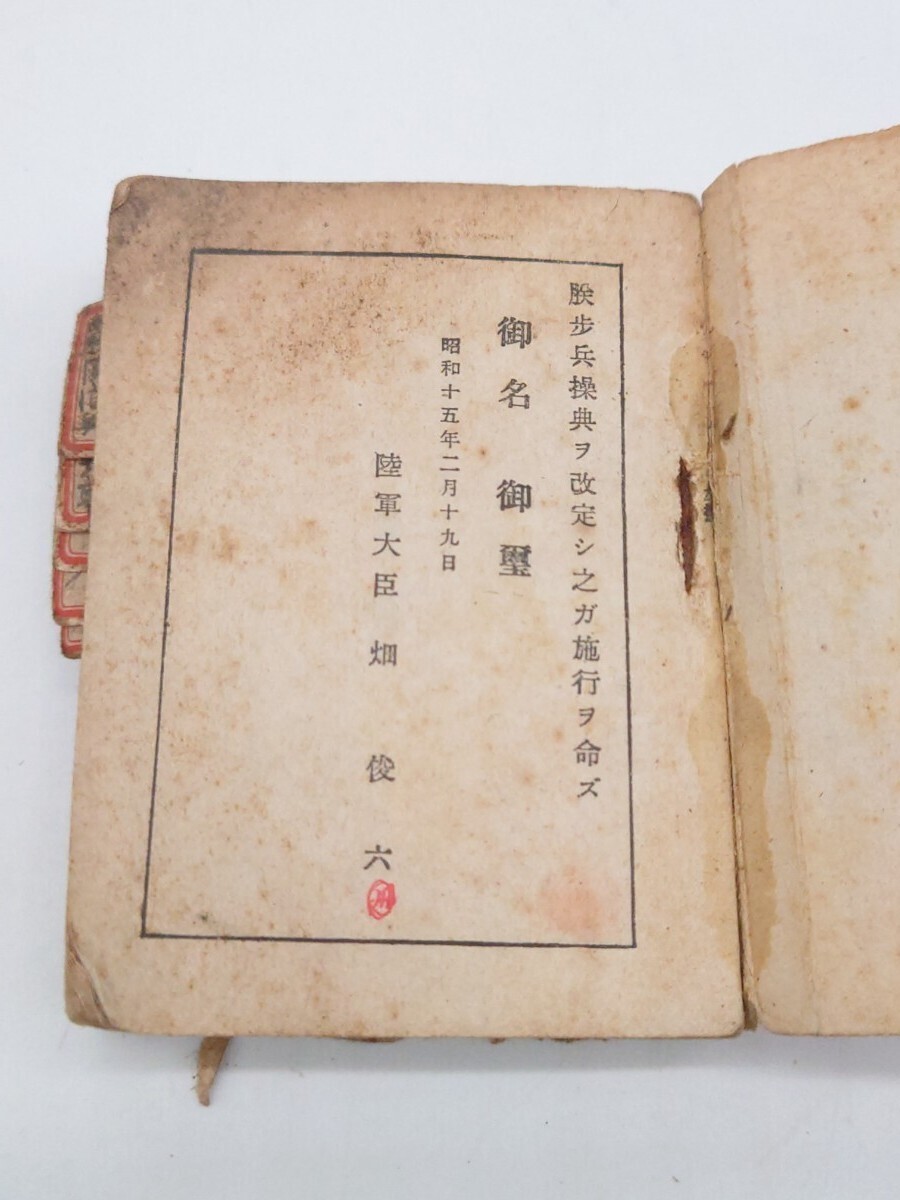 朕步兵操典ヲ改定シ之ガ施行ヲ命ズ
御名御璽
昭和十五年二月十九日
陸軍大臣 畑俊六